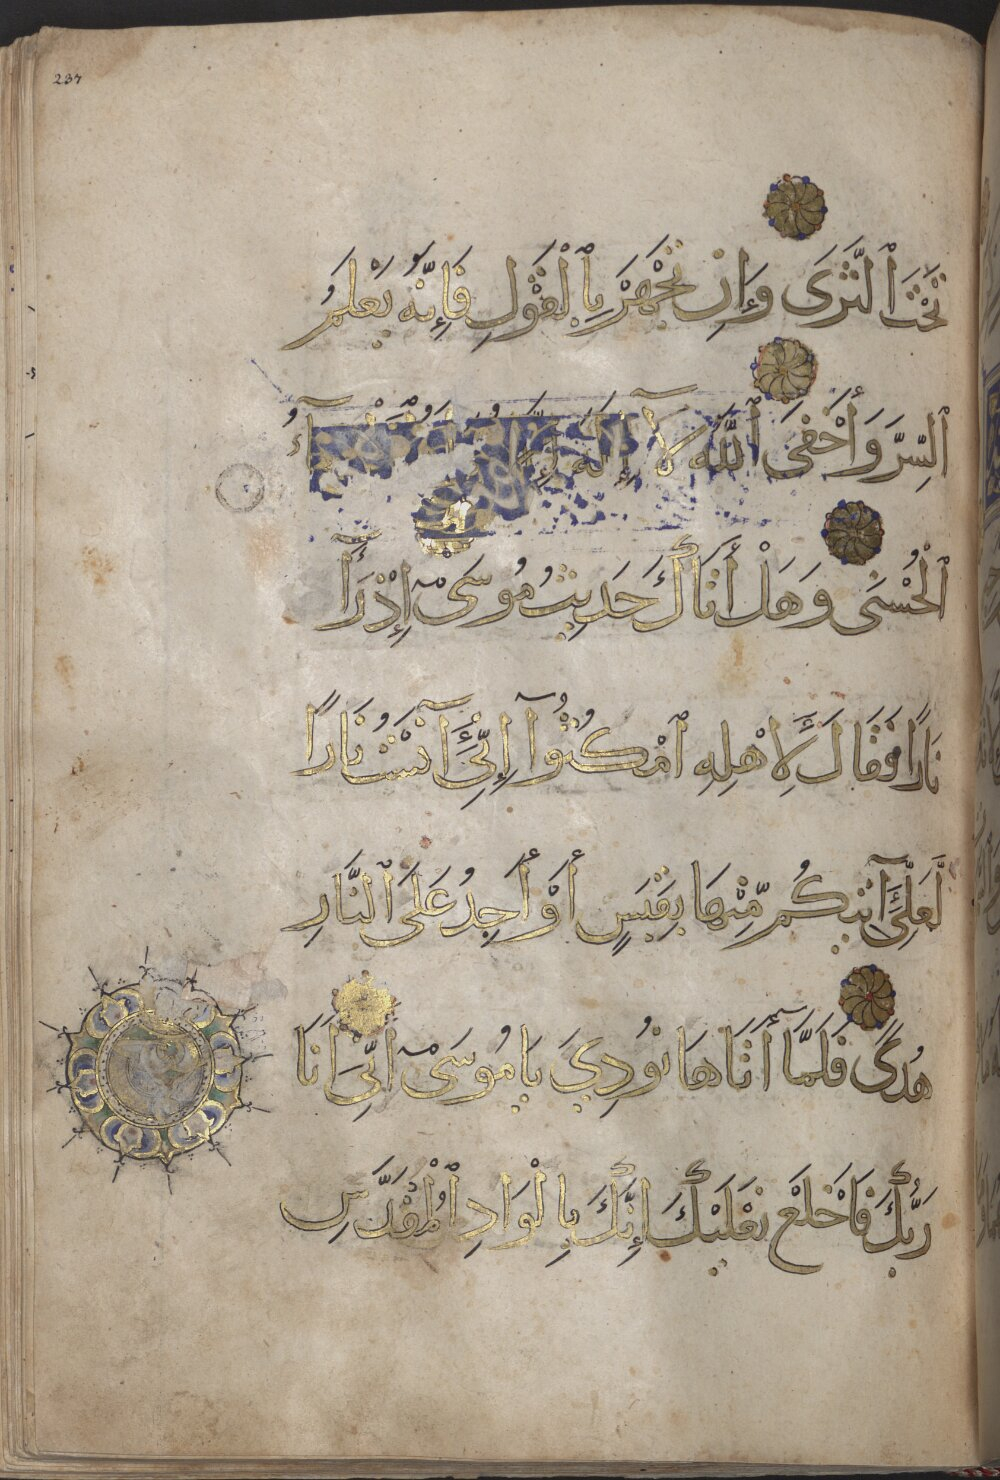 237
تَحْتَ ٱلثَّرَى وَإِن تَجْهَرْ بِٱلْقَوْلِ فَإِنَّهُ يَعْلَمُ
ٱلسِّرَّ وَأَخْفَى ٱللَّهُ لَآ إِلَٰهَ إِلَّا
ٱلْحُسْنَى وَهَلْ أَتَاكَ حَدِيثُ مُوسَىٰٓ إِذْ رَأَا
نَارًا فَقَالَ لِأَهْلِهِ ٱمْكُثُوٓا إِنِّيَ آنَسْتُ نَارًا
لَّعَلِّيَ آتِيكُم مِّنْهَا بِقَبَسٍ أَوْ أَجِدُ عَلَى ٱلنَّارِ
هُدًى فَلَمَّآ أَتَاهَا نُودِيَ يَا مُوسَىٰٓ أَنِّيَ أَنَا
رَبُّكَ فَاخْلَعْ نَعْلَيْكَ إِنَّكَ بِالْوَادِ ٱلْمُقَدَّسِ